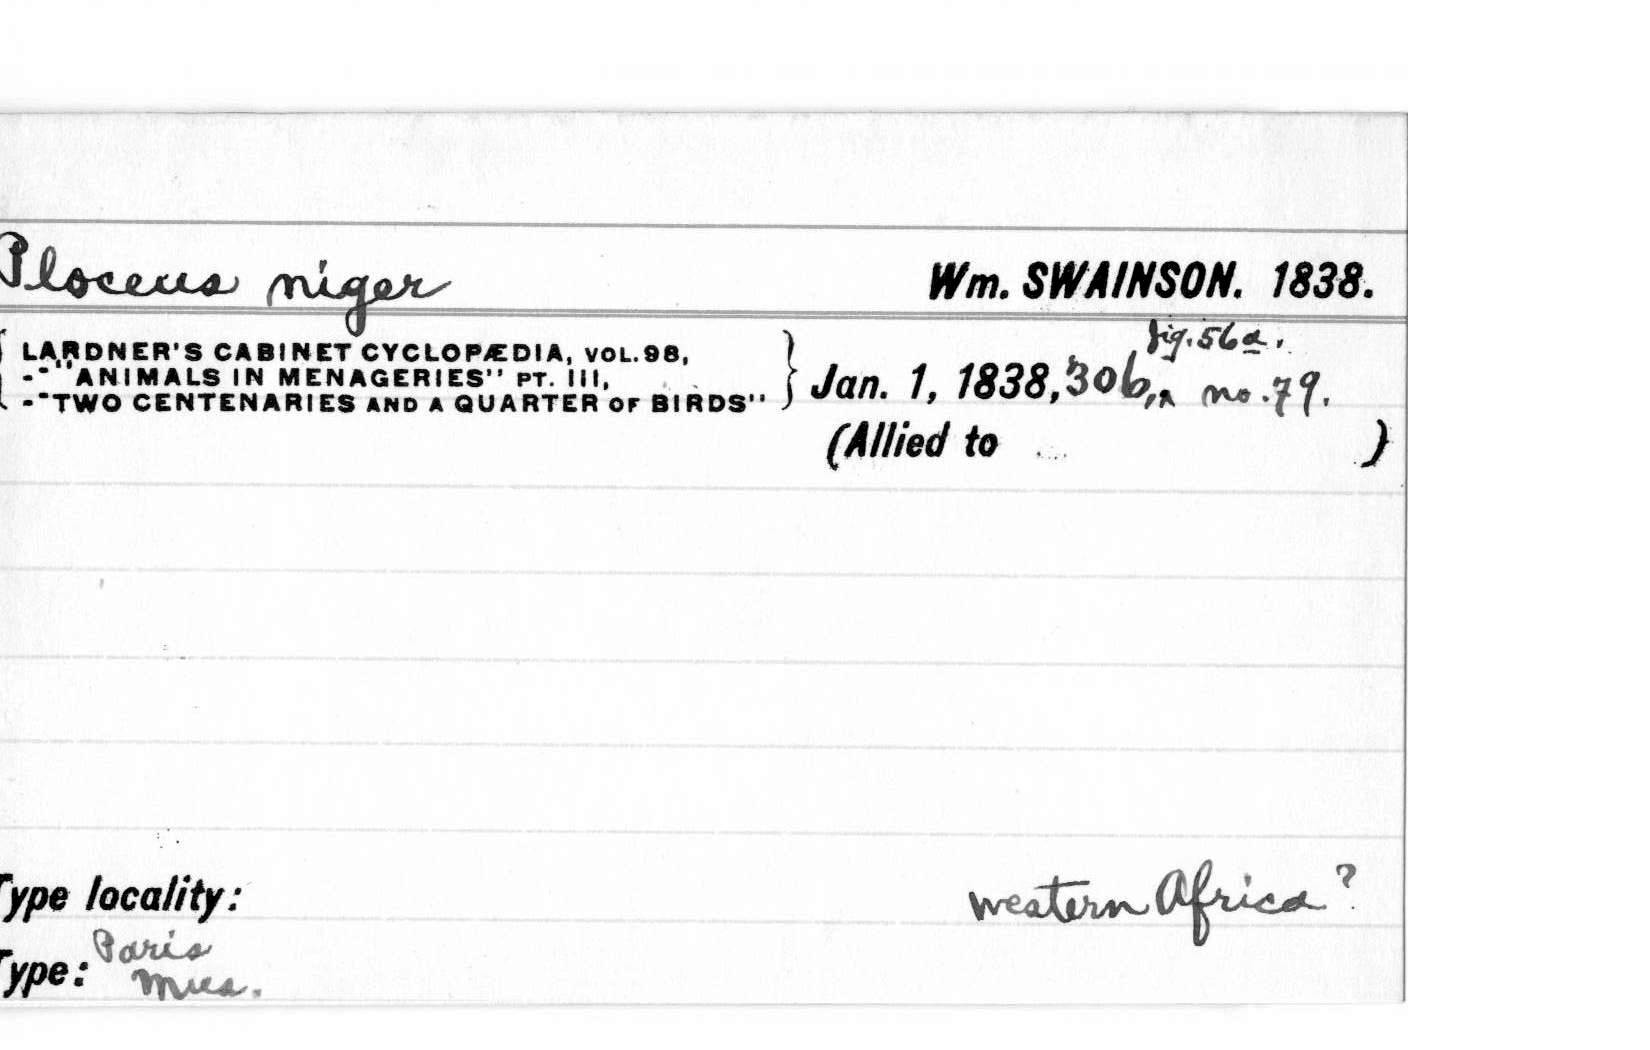 Ploceus niger Wm. SWAINSON. 1838.
fig. 56a.
LARDNER'S CABINET CYCLOPÆDIA, VOL. 98,
-"ANIMALS IN MENAGERIES" PT. III,
-"TWO CENTENARIES AND A QUARTER OF BIRDS"
Jan. 1, 1838, 306, ^ no. 79.
(Allied to )
Type locality: western Africa?
Type: Paris
Mus.